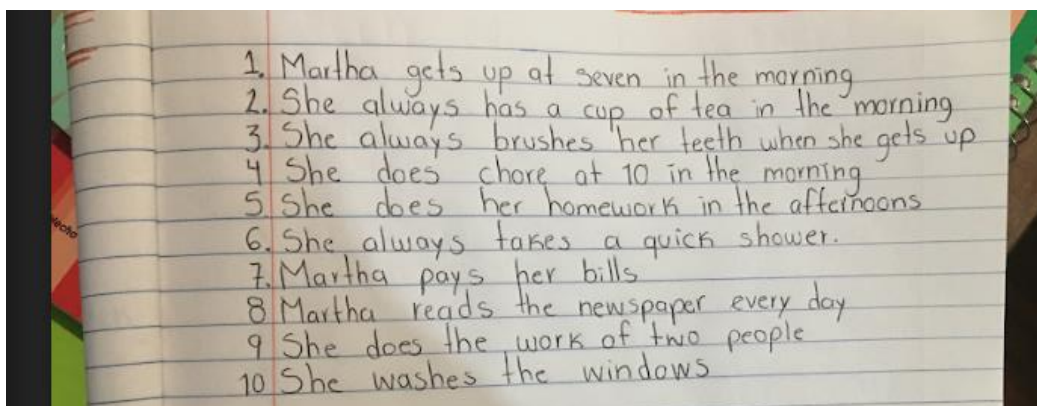 1. Martha gets up at seven in the morning
2. She always has a cup of tea in the morning
3. She always brushes her teeth when she gets up
4 She does chore at 10 in the morning
5. She does her homework in the afternoons
6. She always takes a quick shower.
7. Martha pays her bills
8 Martha reads the newspaper every day
9 She does the work of two people
10 She washes the windows